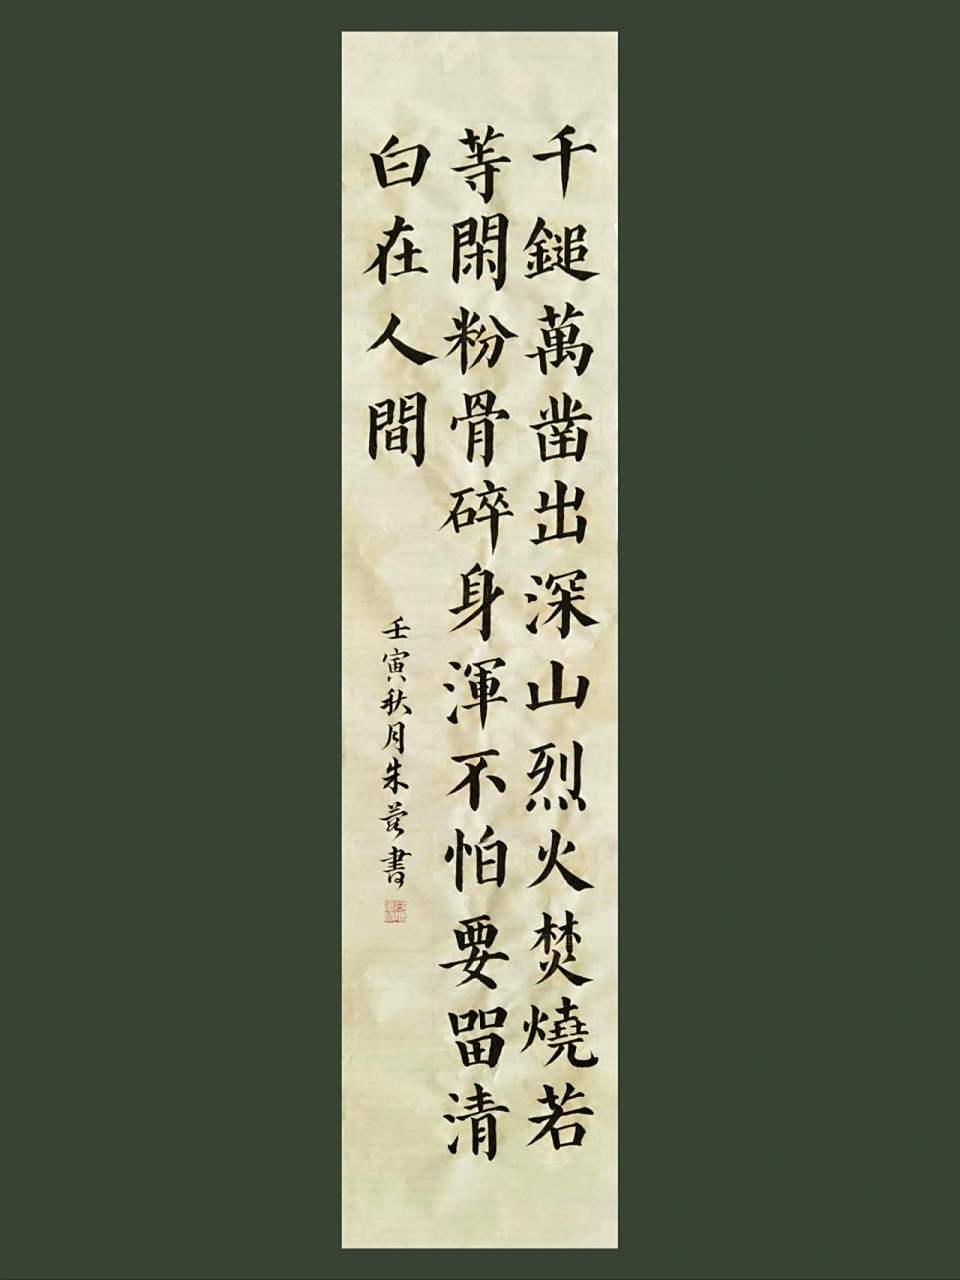 千鎚萬凿出深山烈火焚燒若
等閑粉骨碎身渾不怕要畱清
白在人間
壬寅秋月朱書